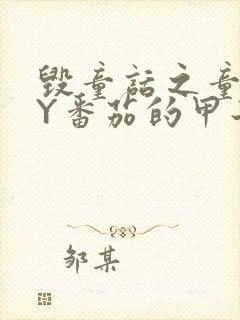 毁童话之童
Y番茄的甲
邹某